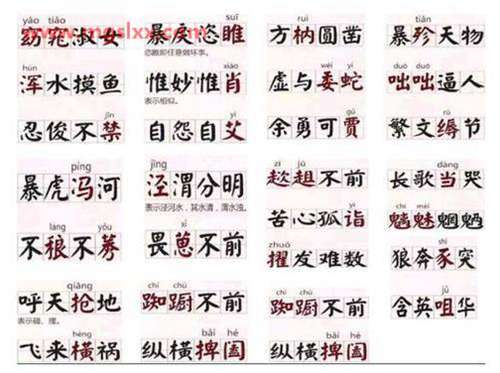 yǎo tiǎo suī ruì tiǎn
窈窕淑女 暴戾恣睢 方枘圆凿 暴殄天物
hún xiào wēi yí duō duō
浑水摸鱼 惟妙惟肖 虚与委蛇 咄咄逼人
表示相似。
jīn yì gǔ rù
忍俊不禁 自怨自艾 余勇可贾 繁文缛节
píng jīng zī jū dàng
暴虎冯河 泾渭分明 趑趄不前 长歌当哭
表示泾河水，其水清，渭水浊。
láng yǒu xǐ yì
不稂不莠 畏葸不前 苦心孤诣 魑魅魍魉
zhuó
擢发难数 狼奔豕突
qiāng chí chú chí chú
呼天抢地 踟蹰不前 踟蹰不前 含英咀华
hèng bǎi hé bǎi hé
飞来横祸 纵横捭阖 纵横捭阖